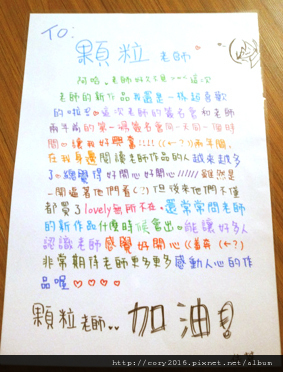 To:
顆粒 老師
阿哈。老師好久不見~~~ 這次
老師的新作品我還是一樣超喜歡
的啦! 這次老師的簽名會和老師
兩年前的第一場簽名會同一天同一個時
間。讓我好興奮!!!! (←?)兩年間,
在我身邊閱讀老師作品的人越來越多
了。總覺得好開心好開心////// 雖然是
一開逼著他們看(?)但後來他們不僅
都買了lovely無所不在。還常常問老師
的新作品什麼時候會出。能讓好多人
認識老師感覺好開心 (←?)
非常期待老師更多更多感動人心的作
品喔♡♡♡♡
顆粒老師.. 加油!
http://cory2016.pixnet.net/album